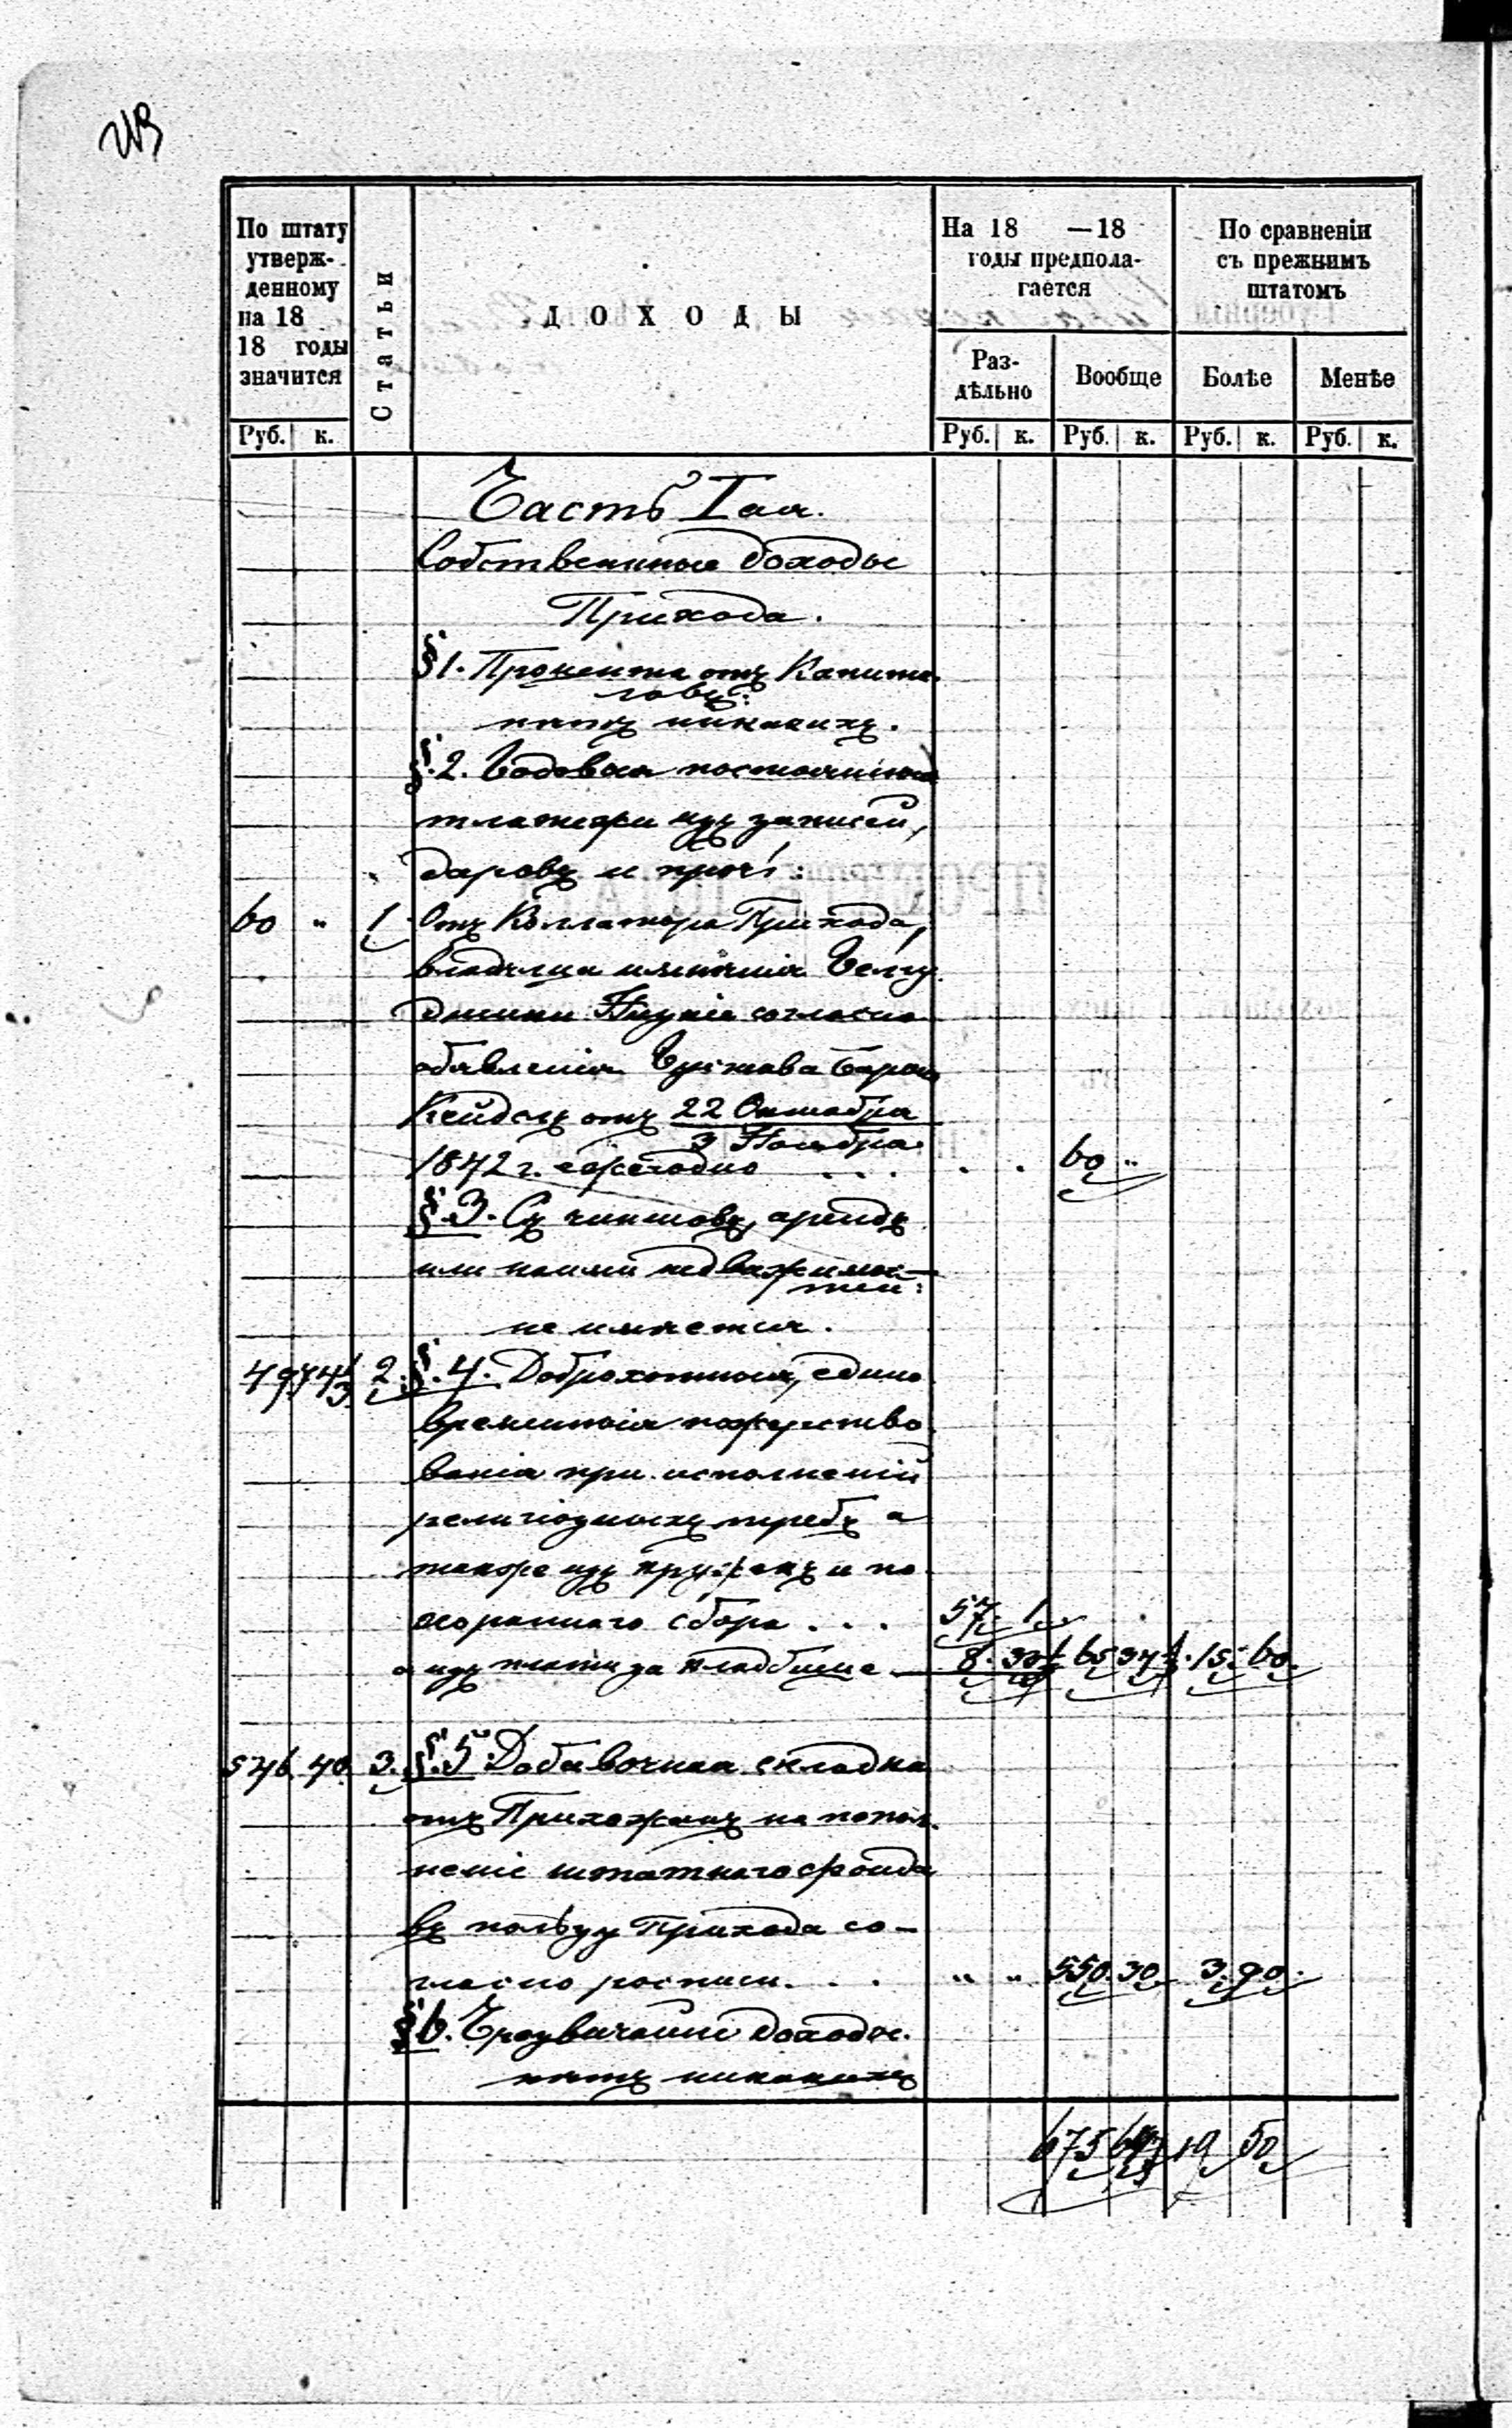 По штату утверж-денному на 18 18 годы значится
Статьи
ДОХОДЫ
На 18 —18 годы предпола-гается
По сравненіи съ прежнимъ штатомъ
Раз-дѣльно
Вообще
Болѣе
Менѣе
Руб. к.
Руб. к.
Руб. к.
Руб. к.
Руб. к.
Часть Iая.
Собственные доходы
Прихода.
§ 1. Процента отъ Капита
ловъ:
нѣтъ никакихъ.
§. 2. Годовыя постоянныя
платежи изъ записей,
даровъ и проч:
60 " 1 Отъ Коллатора Прихода,
владѣльца имѣнія Гелгу
согласно
объявленія Густава Барона
Кейдель отъ 22 Октября
3 Ноября
1842 г. ежегодно . . . . . 60 "
§. 3. Съ чиншовъ, арендъ
или наими недвижимос-
тей:
не имѣется.
49 74 1/3 2. §. 4. Доброхотныя, едино
временныя пожертво
ванія при исполненіи
религіозныхъ требъ а
также изъ кружекъ и по
хороннаго сбора . . . 57. 1.
а изъ платы за кладбище 8. 33 1/3 65 34 1/3 15. 60.
546. 40. 3. §. 5. Добавочная складка
отъ Прихожанъ на попол
неніе штатнаго фонда
въ пользу Прихода со-
гласно росписи. . . " " 550. 30. 3. 90.
§ 6. Чрезвычайные доходы.
нѣтъ никакихъ
675 64 1/3 19 50